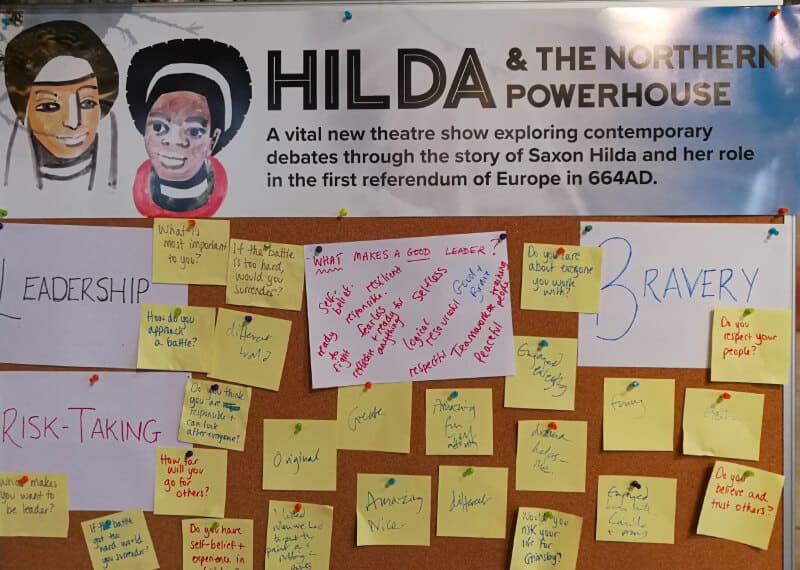 HILDA & THE NORTHERN
POWERHOUSE
A vital new theatre show exploring contemporary
debates through the story of Saxon Hilda and her role
in the first referendum of Europe in 664AD.
LEADERSHIP
What is
most important
to you?
If the battle
is too hard,
would you
surrender?
WHAT MAKES A GOOD LEADER?
Self-
belief.
resilient
responsible.
fearless
ready to
anything
ready
to
fight
selfless
logical
resourceful
respectful
Teamwork
Peaceful
Good
training
people
Do you care
about everyone
you work
with?
BRAVERY
How do you
approach a
a battle?
different
world
Do you
respect your
people?
RISK-TAKING
Do you think
you are
responsible +
can look
after everyone?
Create
Amazing
fun
Enjoyed
Original
drama
helps
How far
will you
go for
others?
makes
you want to
be leader?
Amazing
Nice.
different
Enjoyed
Do you
believe and
trust others?
If the battle
got too
hard would
you surrender?
Do you have
self-belief +
experience in
I liked
when we had
to put the
Would you
risk your
life for
Grimsby?